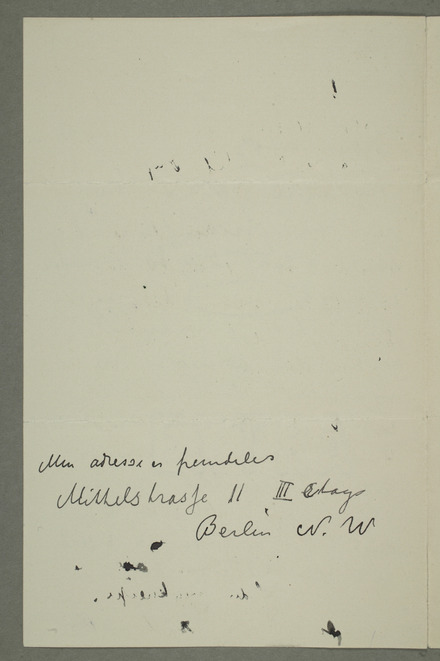 Min adresse er fremdeles
Mittelstrasse 11 III Etage
Berlin N. W